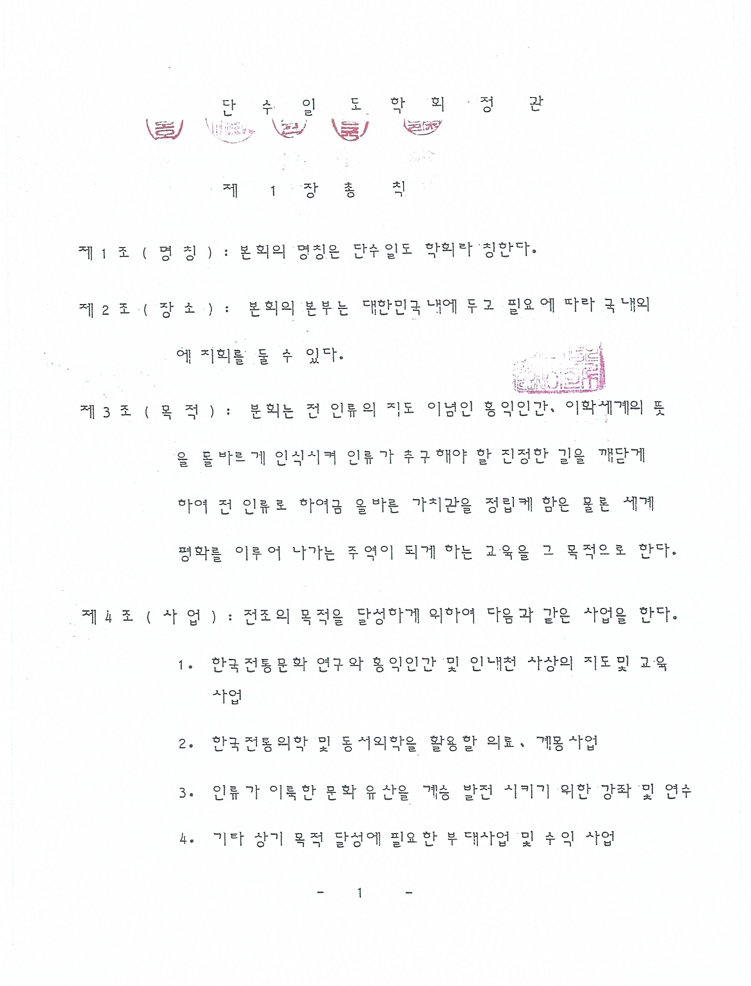 단 수 일 도 학 회 정 관
제 1 장 총 칙
제 1 조 ( 명 칭 ) : 본회의 명칭은 단수일도 학회라 칭한다.
제 2 조 ( 장 소 ) : 본회의 본부는 대한민국내에 두고 필요에 따라 국내외
에 지회를 둘 수 있다.
제 3 조 ( 목 적 ) : 본회는 전 인류의 지도 이념인 홍익인간、이화세계의 뜻
을 올바르게 인식시켜 인류가 추구해야 할 진정한 길을 깨닫게
하여 전 인류로 하여금 올바른 가치관을 정립케 함은 물론 세계
평화를 이루어 나가는 주역이 되게 하는 교육을 그 목적으로 한다.
제 4 조 ( 사 업 ) : 전조의 목적을 달성하게 위하여 다음과 같은 사업을 한다.
1. 한국전통문화 연구와 홍익인간 및 인내천 사상의 지도및 교육
사업
2. 한국전통의학 및 동서의학을 활용할 의료、계몽사업
3. 인류가 이룩한 문화 유산을 계승 발전 시키기 위한 강좌 및 연수
4. 기타 상기 목적 달성에 필요한 부대사업 및 수익 사업
- 1 -